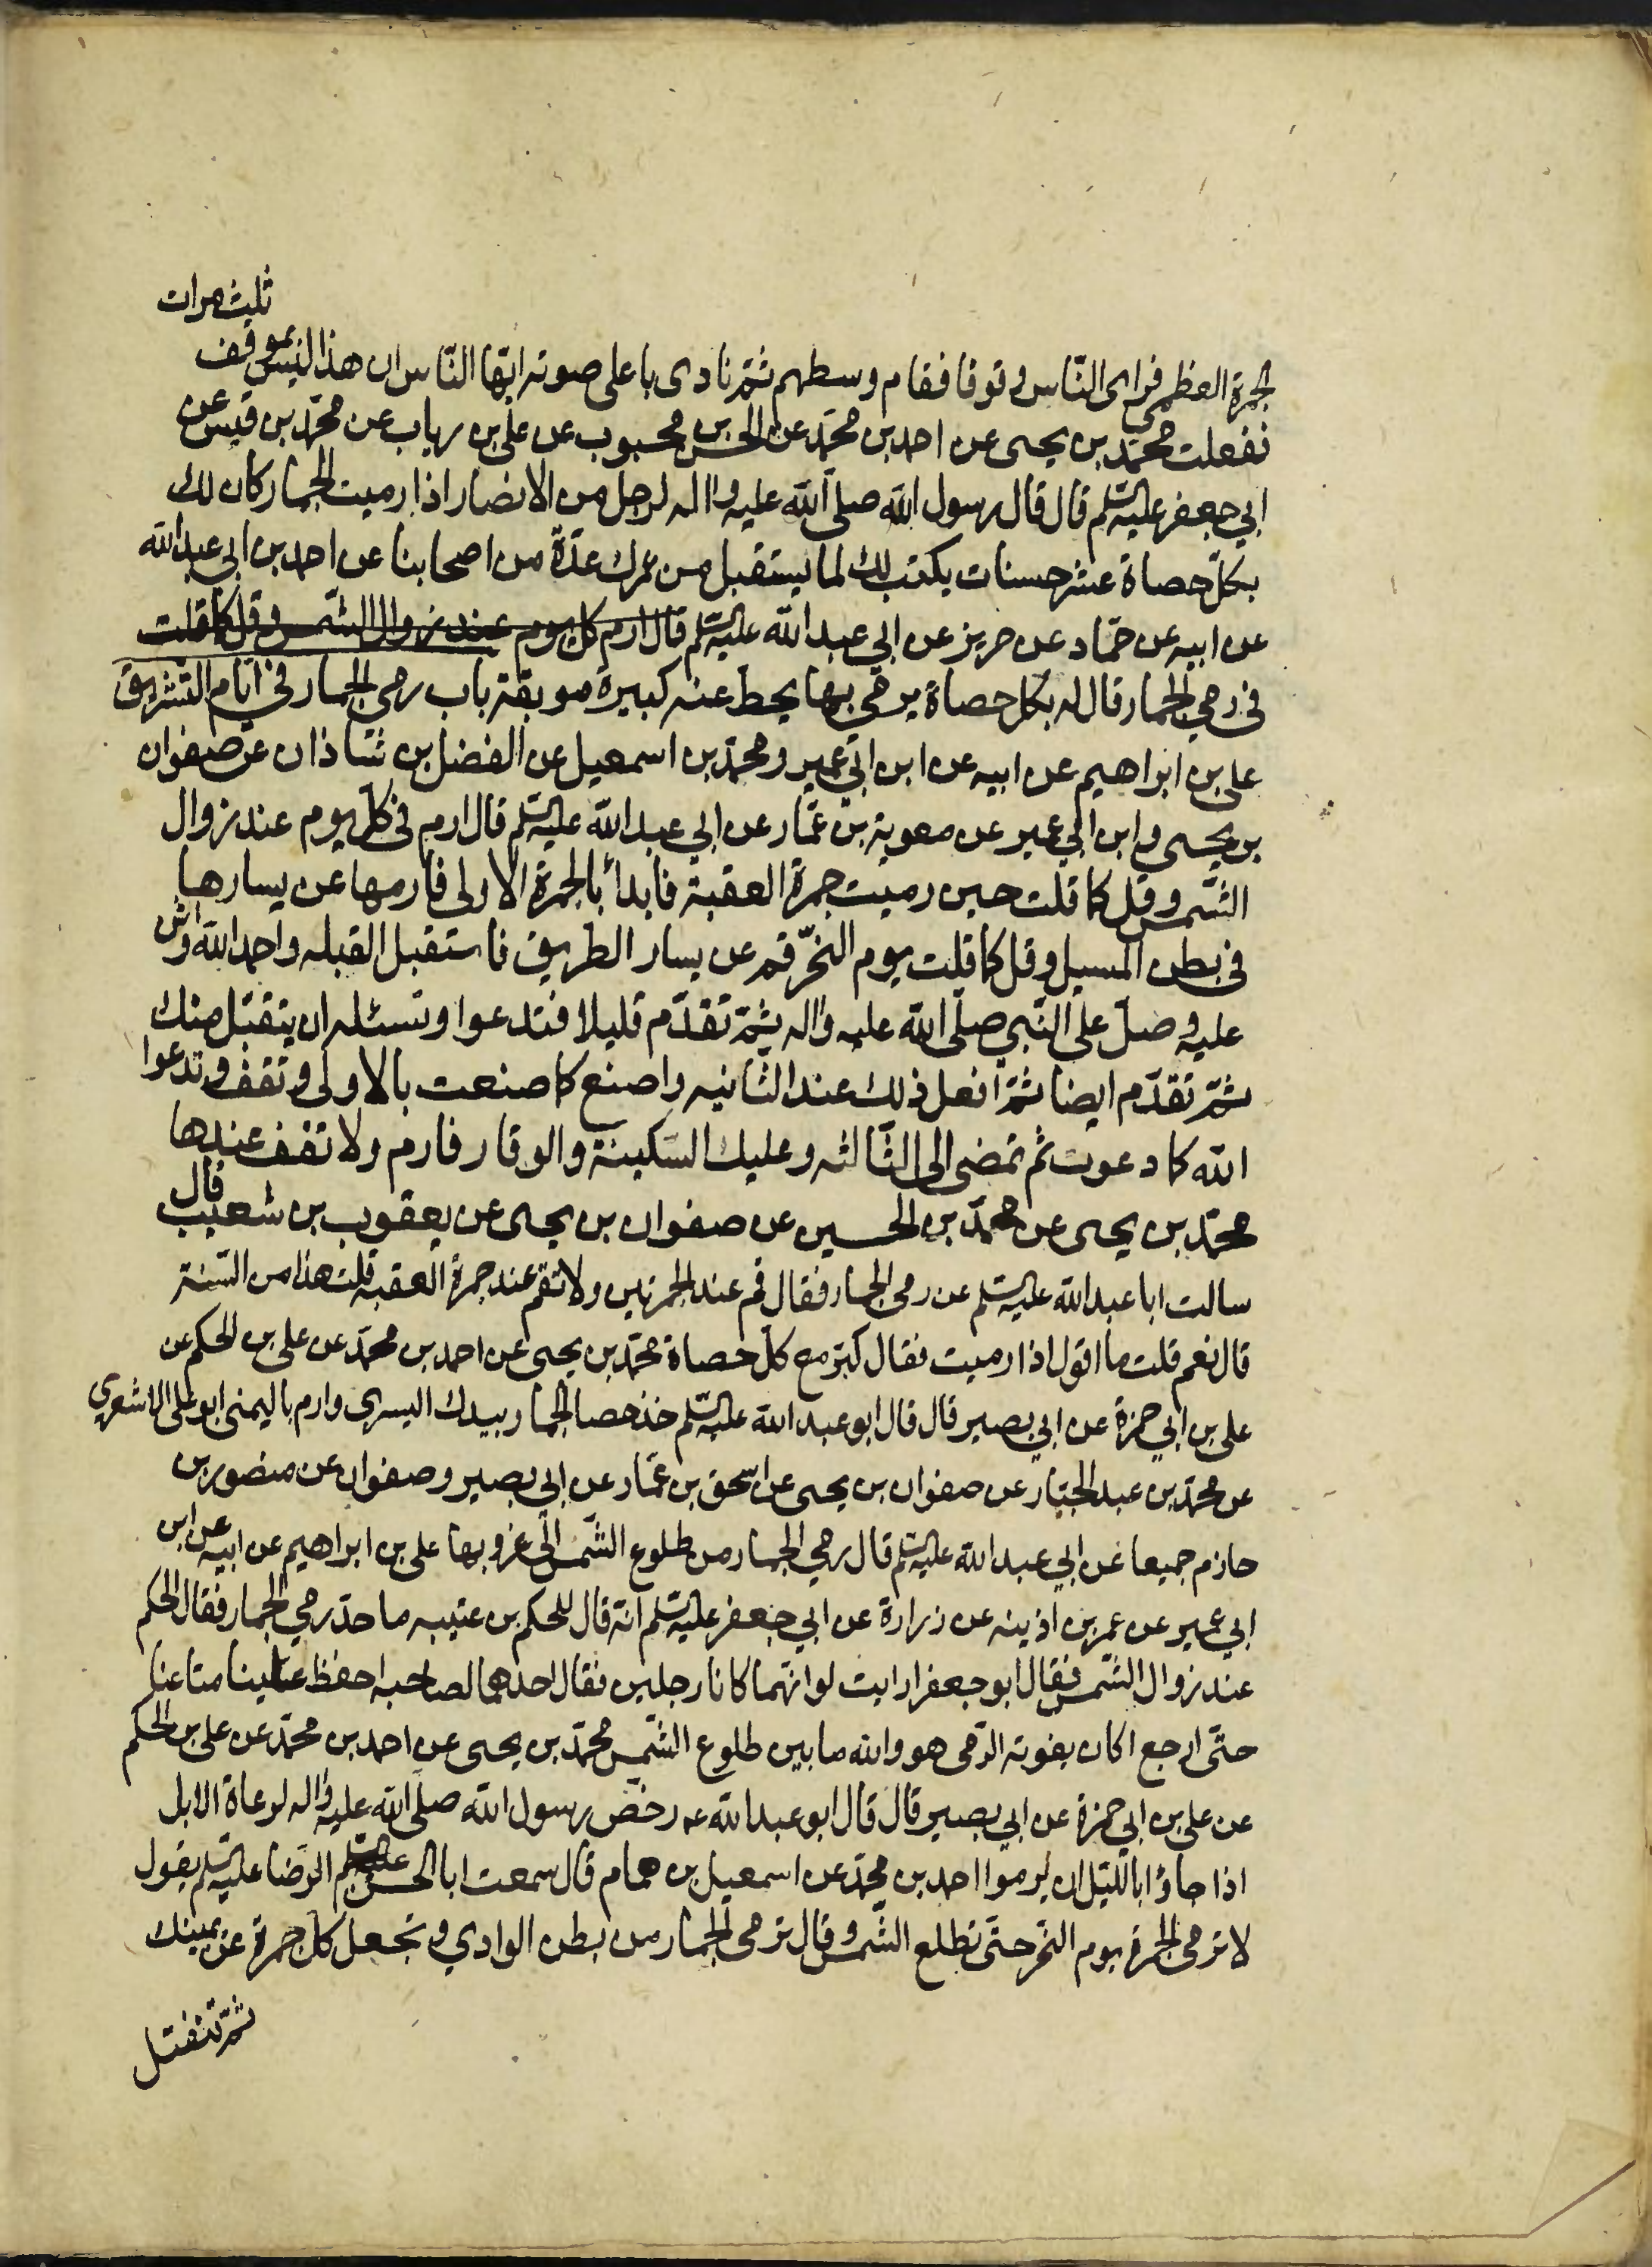 ثلث مرات
الجمرة العظمى فراى الناس وقوفا فقام وسطهم ثمّ نادى باعلى صوته ايّها النّاس ان هذا ليس بموقف
ففعلت محمّد بن يحيى عن احمد بن محمّد عن الحسن بن محبوب عن على بن رياب عن محمّد بن قيس عن
ابي جعفر عليه السّلم قال قال رسول الله صلى الله عليه واله لرجل من الانصار اذا رميت الجمار كان لك
بكلّ حصاة عشر حسنات يكتب لك لما يستقبل من عمرك عدّة من اصحابنا عن احمد بن ابي عبد الله
عن ابيه عن حمّاد عن حريز عن ابي عبد الله عليه السّلم قال ارم كل يوم عند زوال الشّمس وقل كما قلت
في رمي الجمار قال له بكل حصاة يرمي بها يحط عنه كبيرة موبقة باب رمى الجمار في ايّام التّشريق
على بن ابراهيم عن ابيه عن ابن ابي عمير ومحمّد بن اسمعيل عن الفضل بن شاذان عن صفوان
بن يحيى وابن ابي عمير عن معوية بن عمّار عن ابي عبد الله عليه السّلم قال ارم في كلّ يوم عند زوال
الشّمس وقل كما قلت حين رميت جمرة العقبة فابدأ بالجمرة الاولى فارمها عن يسارها
في بطن المسيل وقل كما قلت يوم النحر قم عن يسار الطريق فاستقبل القبله واحمد الله واثن
عليه وصلّ على النّبي صلّى الله عليه واله ثمّ تقدّم قليلا فتدعوا وتسئله ان يتقبّل منك
ثمّ تقدّم ايضا ثمّ افعل ذلك عند الثّانيه واصنع كما صنعت بالاولى وتقف وتدعوا
الله كما دعوت ثم تمضى الى الثّالثه وعليك السّكينة والوقار فارم ولا تقف عندها
محمّد بن يحيى عن محمّد بن الحسين عن صفوان بن يحيى عن يعقوب بن شعيب قال
سالت ابا عبد الله عليه السّلم عن رمى الجمار فقال قم عند الجمرتين ولا تقم عند جمرة العقبة قلت هذا من السّنة
قال نعم قلت ما اقول اذا رميت فقال كبّر مع كلّ حصاة محمّد بن يحيى عن احمد بن محمّد عن على بن الحكم عن
على بن ابي حمزة عن ابي بصير قال قال ابو عبد الله عليه السّلم خذ حصا الجمار بيدك اليسرى وارم باليمنى ابو على الاشعري
عن محمّد بن عبد الجبّار عن صفوان بن يحيى عن اسحق بن عمّار عن ابي بصير وصفوان عن منصور بن
حازم جميعا عن ابي عبد الله عليه السّلم قال رمي الجمار من طلوع الشّمس الى غروبها على بن ابراهيم عن ابيه عن ابن
ابي عمير عن عمر بن اذينه عن زرارة عن ابي جعفر عليه السّلم انّه قال للحكم بن عتيبه ما حدّ رمي الجمار فقال الحكم
عند زوال الشّمس فقال ابو جعفر ارايت لو انّهما كانا رجلين فقال احدهما لصاحبه احفظ علينا متاعنا
حتّى ارجع اكان يفوته الرّمى هو والله ما بين طلوع الشّمس محمّد بن يحيى عن احمد بن محمّد عن على بن الحكم
عن على بن ابي حمزة عن ابي بصير قال قال ابو عبد الله عه رخص رسول الله صلى الله عليه واله لرعاة الابل
اذا جاؤا باللّيل ان يرموا احمد بن محمّد عن اسمعيل بن همام قال سمعت ابا الحسن الرّضا عليه السّلم يقول
لا ترمى الجمرة يوم النّحر حتّى تطلع الشّمس وقال ترمى الجمار من بطن الوادي وتجعل كلّ جمرة عن يمينك
ثمّ تنفتل